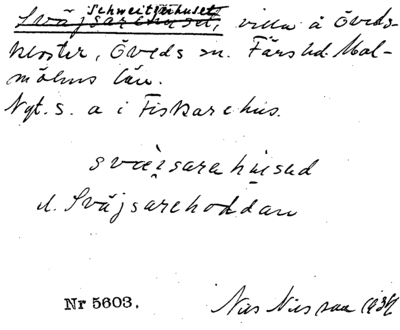 Schweitzerhuset
Sväjsarehuset, villa å Öveds-
kloster, Öveds sn. Färs hd. Mal-
möhus län.
Ngt. s. a i Fiskarehus.
svai̯sarahúsad
el. Sväjsarehoddan
Nr 5603.
Nils Nilsson